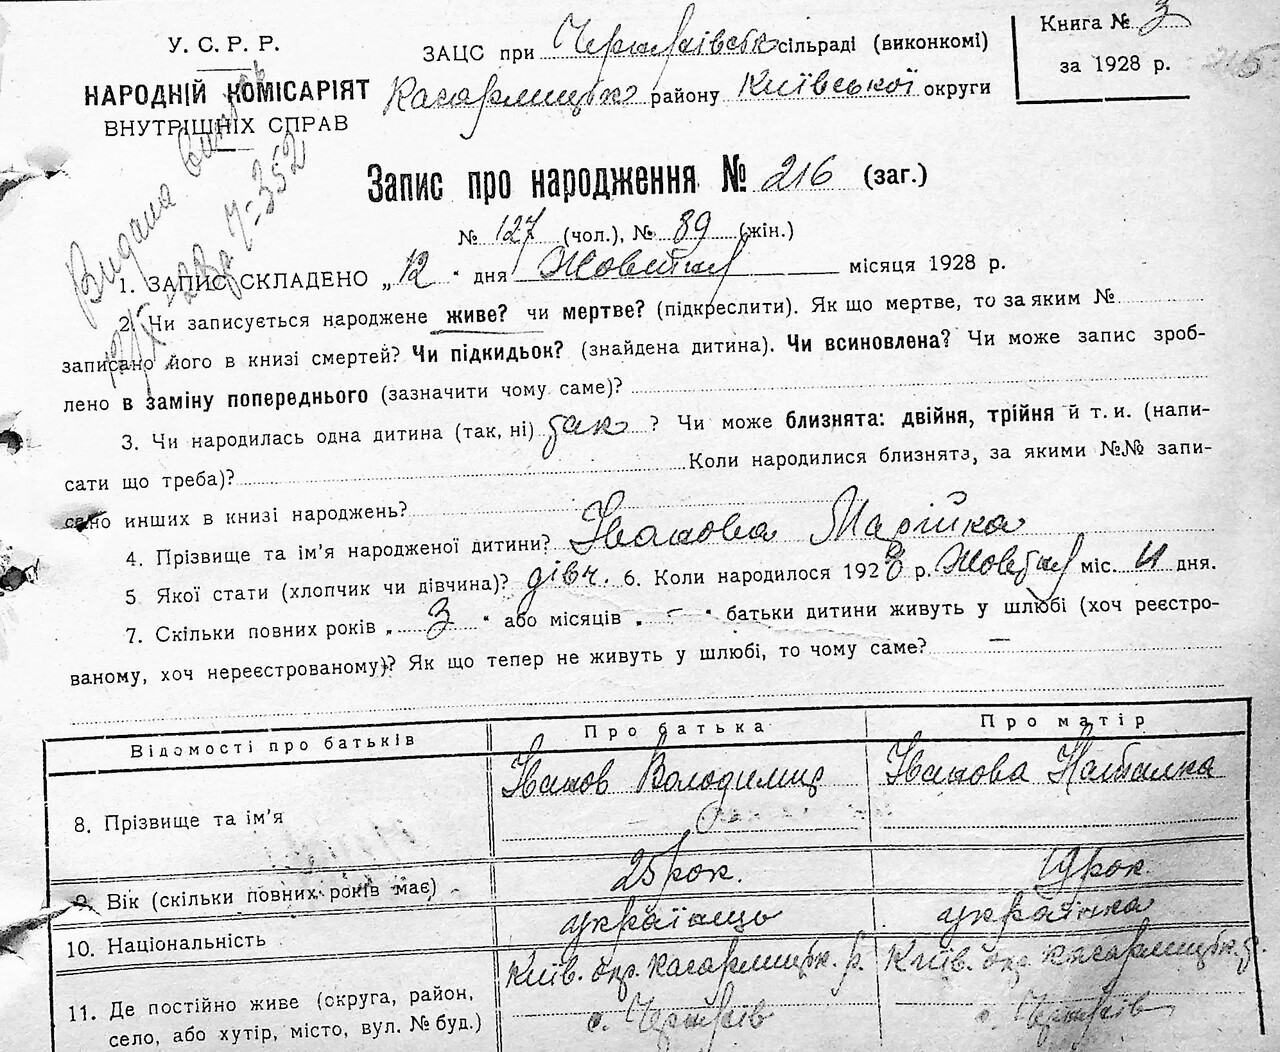 У. С. Р. Р.
НАРОДНІЙ КОМІСАРІЯТ
ВНУТРІШНІХ СПРАВ
ЗАЦС при сільраді (виконкомі)
Кагарлицьк. району Київської округи
Книга № 3
за 1928 р.
Видана
7-352
Запис про народження № 216 (заг.)
№ 127 (чол.), № 89 (жін.)
1. ЗАПИС СКЛАДЕНО „12" дня Жовтня місяця 1928 р.
2. Чи записується народжене живе? чи мертве? (підкреслити). Як що мертве, то за яким №
записано його в книзі смертей? Чи підкидьок? (знайдена дитина). Чи всиновлена? Чи може запис зроб-
лено в заміну попереднього (зазначити чому саме)?
3. Чи народилась одна дитина (так, ні) так ? Чи може близнята: двійня, трійня й т. и. (напи-
сати що треба)? Коли народилися близнята, за якими №№ запи-
сано инших в книзі народжень?
4. Прізвище та ім'я народженої дитини? Іванова Марійка
5 Якої стати (хлопчик чи дівчина)? дівч. 6. Коли народилося 1928 р. Жовтня міс. 11 дня.
7. Скільки повних років „ 3 " або місяців „ — " батьки дитини живуть у шлюбі (хоч реєстро-
ваному, хоч нереєстрованому)? Як що тепер не живуть у шлюбі, то чому саме? —
Відомості про батьків Про батька Про матір
8. Прізвище та ім'я Іванов Володимир Іванова Наталка
9. Вік (скільки повних років має) 25 рок. 19 рок.
10. Національність українць українка
11. Де постійно живе (округа, район, Київ. окр. Кагарлицьк. р. Київ. окр. Кагарлицьк. р.
село, або хутір, місто, вул. № буд.) с. с.